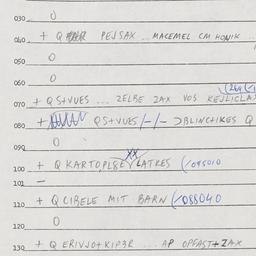 030 0
040 + Q PEJSAX .. MACEMEL CM HONIK ..
050 0
060 0
070 + QS+VUES ... ZELBE ZAX VOS KEJLICLA
080 + QS+VUES/-/- >BLINCHIKES Q
090 0
100 + Q KARTOPLYE XX LATKES (/095010
101 -
110 + Q CIBELE MIT BARN (/088040
120 0
130 + Q ERIVJOTKIP3R .... AP OPFAST+ZAX